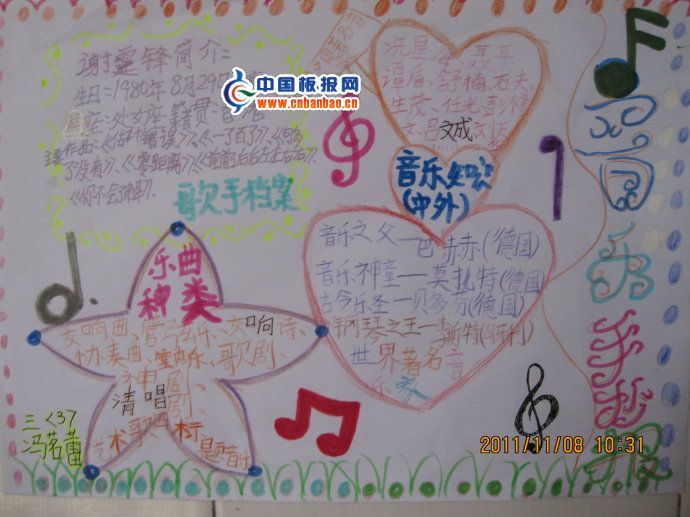 谢霆锋简介:
生日:1980年8月29
星座:处女座 籍贯:香
了没有》《零距离》《前前后后左右右》、
《你不会理解》、
歌手档案
中国板报网
www.cnbanbao.cn
冼星海、聂耳
谭盾、舒楠、石夫
生茂、任光、彭修
文、吕文成、刘炽
音乐知识
(中外)
音乐之父—巴赫(德国)
音乐神童—莫扎特(德国)
古今乐圣—贝多芬(德国)
钢琴之王—李斯特(匈牙利)
世界著名音
乐家
乐曲
种类
交响曲、管弦乐、交响诗、
协奏曲、室内乐、歌剧、
清唱剧
艺术歌曲
音乐手抄报
三〈37〉
冯茗蕾
2011/11/08 10:31